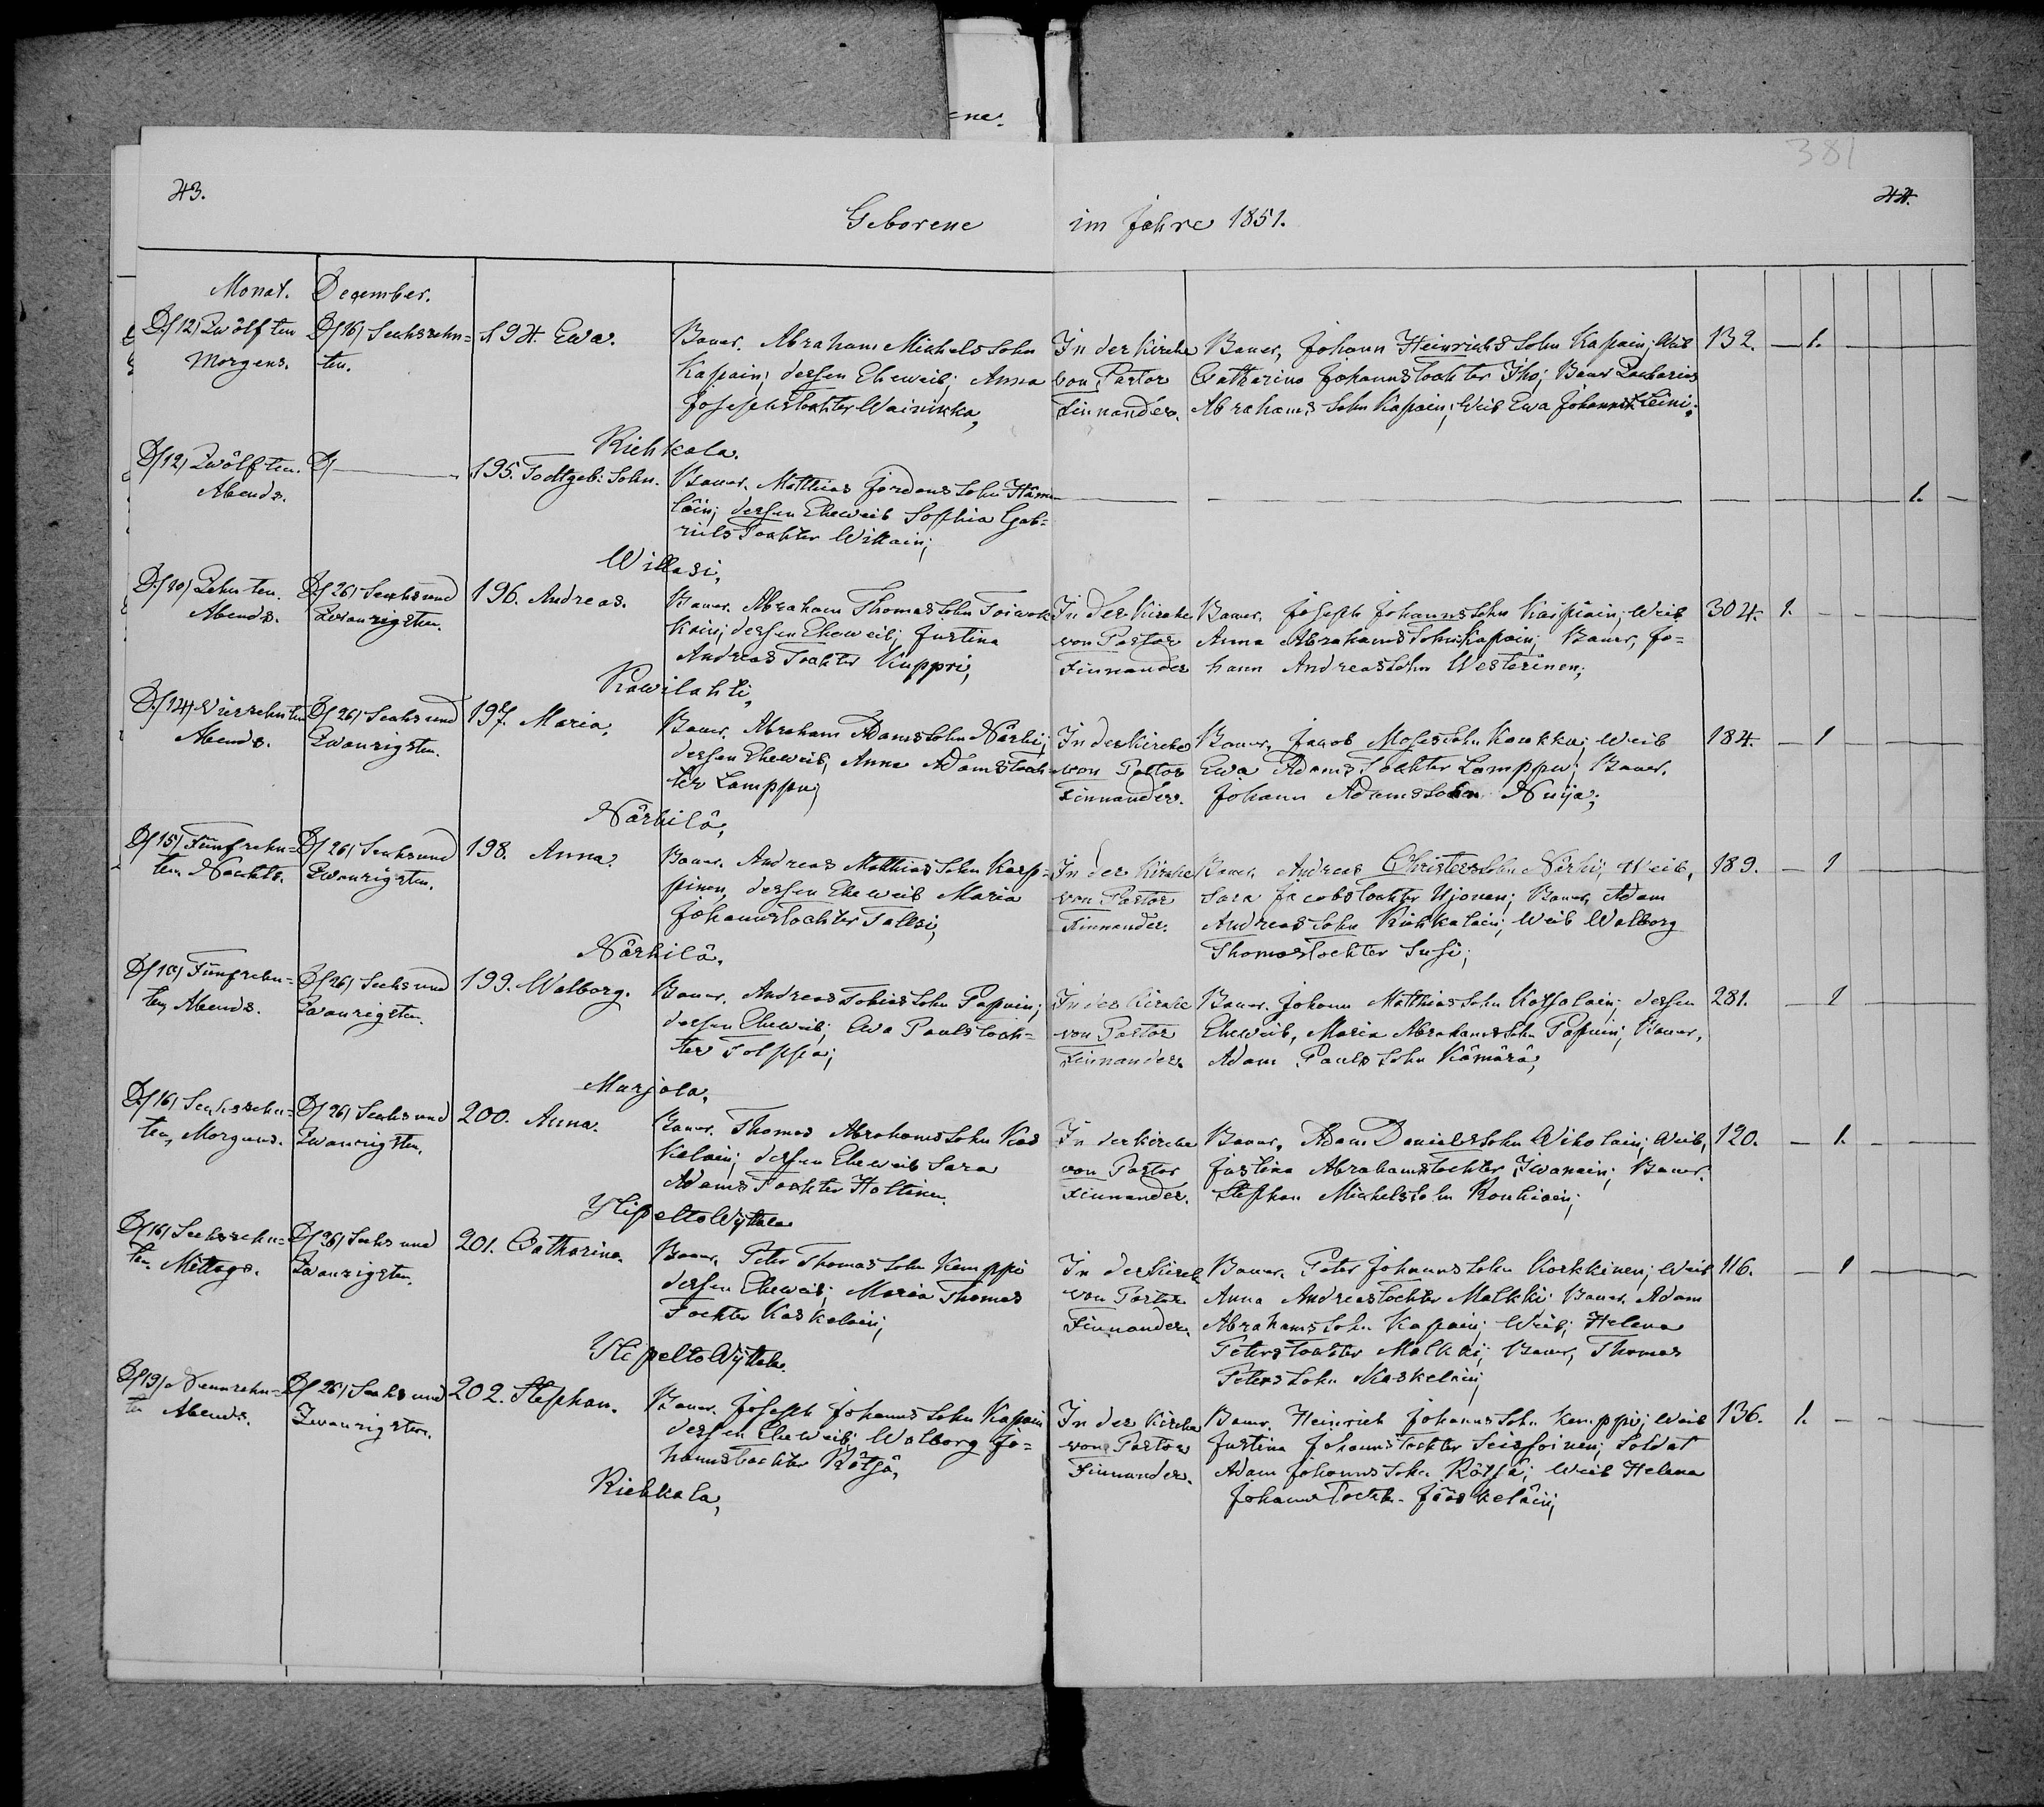 ene.
381
43.
44.
Geborene im Jahre 1851.
Monat. December.
D/12/ Zwölften
Morgens.
D/16/ Sechszehn=
ten.
194. Ewa.
Bauer. Abraham Michelssohn
Kapain; dessen Eheweib; Anna
Josephstochter Wainikka,
Riehkala.
In der Kirche
von Pastor
Finnander.
Bauer, Johann Heinrichssohn Kapain; Weib
Catharina Johannstochter Iho; Bauer Zacharias
Abrahamssohn Kapain; Weib Ewa Johannst. Leini;
132. — 1.
D/12/ Zwölften.
Abends.
D/ —
195. Todtgeb: Sohn.
Bauer. Matthias Jordanssohn Häme
läin; dessen Eheweib Sophia Gab=
rielsTochter Wikain;
Willasi,
1.
D/10/ Zehnten.
Abends.
D/26/ Sechsund
Zwanzigsten.
196. Andreas.
Bauer. Abraham Thomassohn Toiwok
kain; dessen Eheweib; Justina
AndreasTochter Kuppri,
Kawilahti,
In der Kirche
von Pastor
Finnander
Bauer. Joseph Johannssohn Kaipiain; Weib
Anna Abrahamssohn Kapain; Bauer, Jo=
hann Andreassohn Westerinen;
304. 1.
D/14/ Vierzehnten
Abends.
D/26/ Sechsund
Zwanzigsten.
197. Maria,
Bauer. Abraham Adamssohn Närhi;
dessen Eheweib, Anna Adamstoch
ter Lamppu;
Närhilä,
In der Kirche
von Pastor
Finnander.
Bauer, Jacob Mosessohn Koukku; Weib
Ewa AdamsTochter Lamppu; Bauer.
Johann Adamssohn Nuija;
184. — 1
D/15/ Fünfzehn=
ten Nachts.
D/26/ Sechsund
Zwanzigsten.
198. Anna.
Bauer. Andreas Matthiassohn Karp=
pinen, dessen Eheweib Maria
Johannstochter Tallsi,
Närhilä,
In der Kirche
von Pastor
Finnander.
Bauer. Andreas Christerssohn Närhi; Weib,
Sara Jacobstochter Ujonen; Bauer, Adam
Andreassohn Riehkalain; Weib Walborg
Thomastochter Susi;
189. — 1
Fünfzehn=
ten Abends.
D/26/ Sechsund
Zwanzigsten.
199. Walborg.
Bauer, Andreas Tobiassohn Papuin;
dessen Eheweib; Ewa Paulstoch=
ter Tolppa;
Marjola,
In der Kirche
von Pastor
Finnander.
Bauer. Johann Matthiassohn dessen
Eheweib, Maria Abrahamssohn Papuin; Bauer,
Adam Paulssohn Kämärä,
281. — 1
D/16/ Sechszehn=
ten, Morgens.
D/26/ Sechsund
Zwanzigsten,
200. Anna.
Bauer. Thomas Abrahamssohn Kas
kelain; dessen Eheweib Sara
AdamsTochter Holtinen.
In der Kirche
von Pastor
Finnander.
Bauer, Adam Danielssohn Wiholain; Weib,
Justina Abrahamstochter Iwanain; Bauer.
Stephan Michelssohn Rouhiain;
120. — 1.
D/16/ Sechszehn=
ten. Mittags.
D/26/ Sechs und
Zwanzigsten.
201. Catharina.
Bauer, Peter Thomassohn Kemppi
dessen Eheweib; Maria Thomas
Tochter Kaskelain;
In der Kirch
von Pastor
Finnander.
Bauer. Peter Johannssohn Korkkinen; Weib
Anna Andreastochter Malkki. Bauer. Adam
Abrahamssohn Kapain; Weib; Helena
Peterstochter Malkki; Bauer, Thomas
Peterssohn Kaskelain;
116. — 1
D/19/ Neunzehn=
ten Abends.
D/26/ Sechsund
Zwanzigsten.
202. Stephan.
Bauer. Joseph Johannssohn Kapain
dessen Eheweib; Walborg Jo=
hannstochter Rötsä,
Riehkala,
In der Kirche
von Pastor
Finnander.
Bauer. Heinrich Johannssohn Kemppi; Weib
Justina JohannsTochter Seissoinen; Soldat
Adam Johannssohn Rötsä; Weib Helena
JohannsTocht. Jääskeläin;
136. 1.